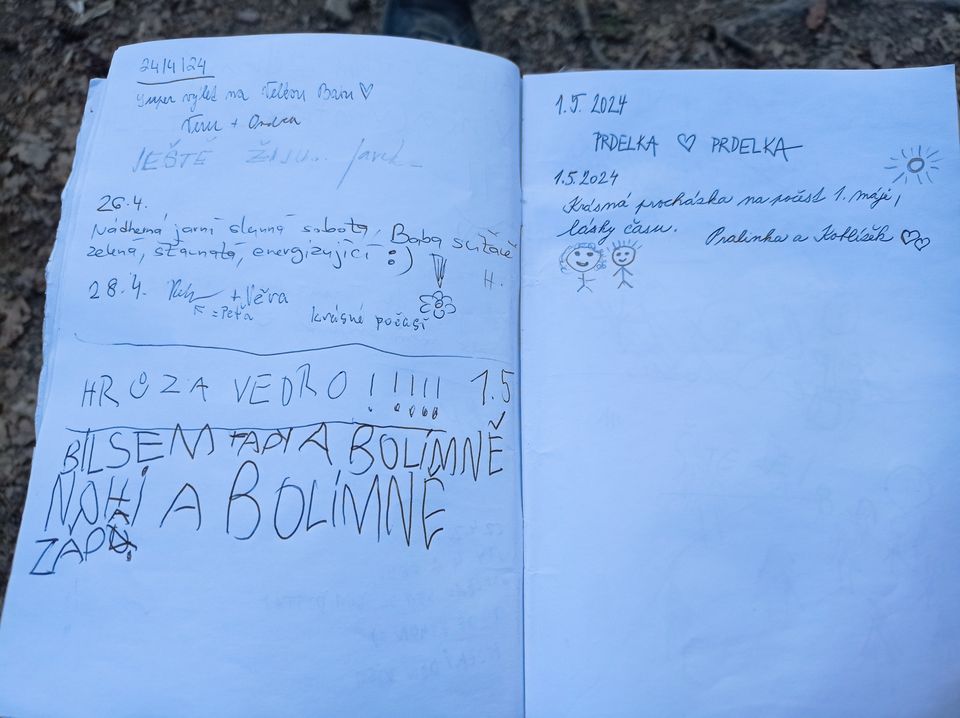 24/4/24
super výlet na Velkou Babu ♡
Teru + Ondra
JEŠTĚ ŽIJU...
26.4.
Nádherná jarní slunná sobota,
zelená, šťavnatá, energizující :)
Baba stížače
H.
28.4. + Věra
= Peťa
krásné počasí
HRŮZA VEDRO !!!!!! 1.5
BILSEM TADY A BOLÍMNĚ
NOHÍ A BOLÍMNĚ
ZÁPA
1.5. 2024
PRDELKA ♡ PRDELKA
1.5.2024
Krásná procházka na počest 1. máje,
lásky času.
Pralinka a Kotlíšek ♡♡